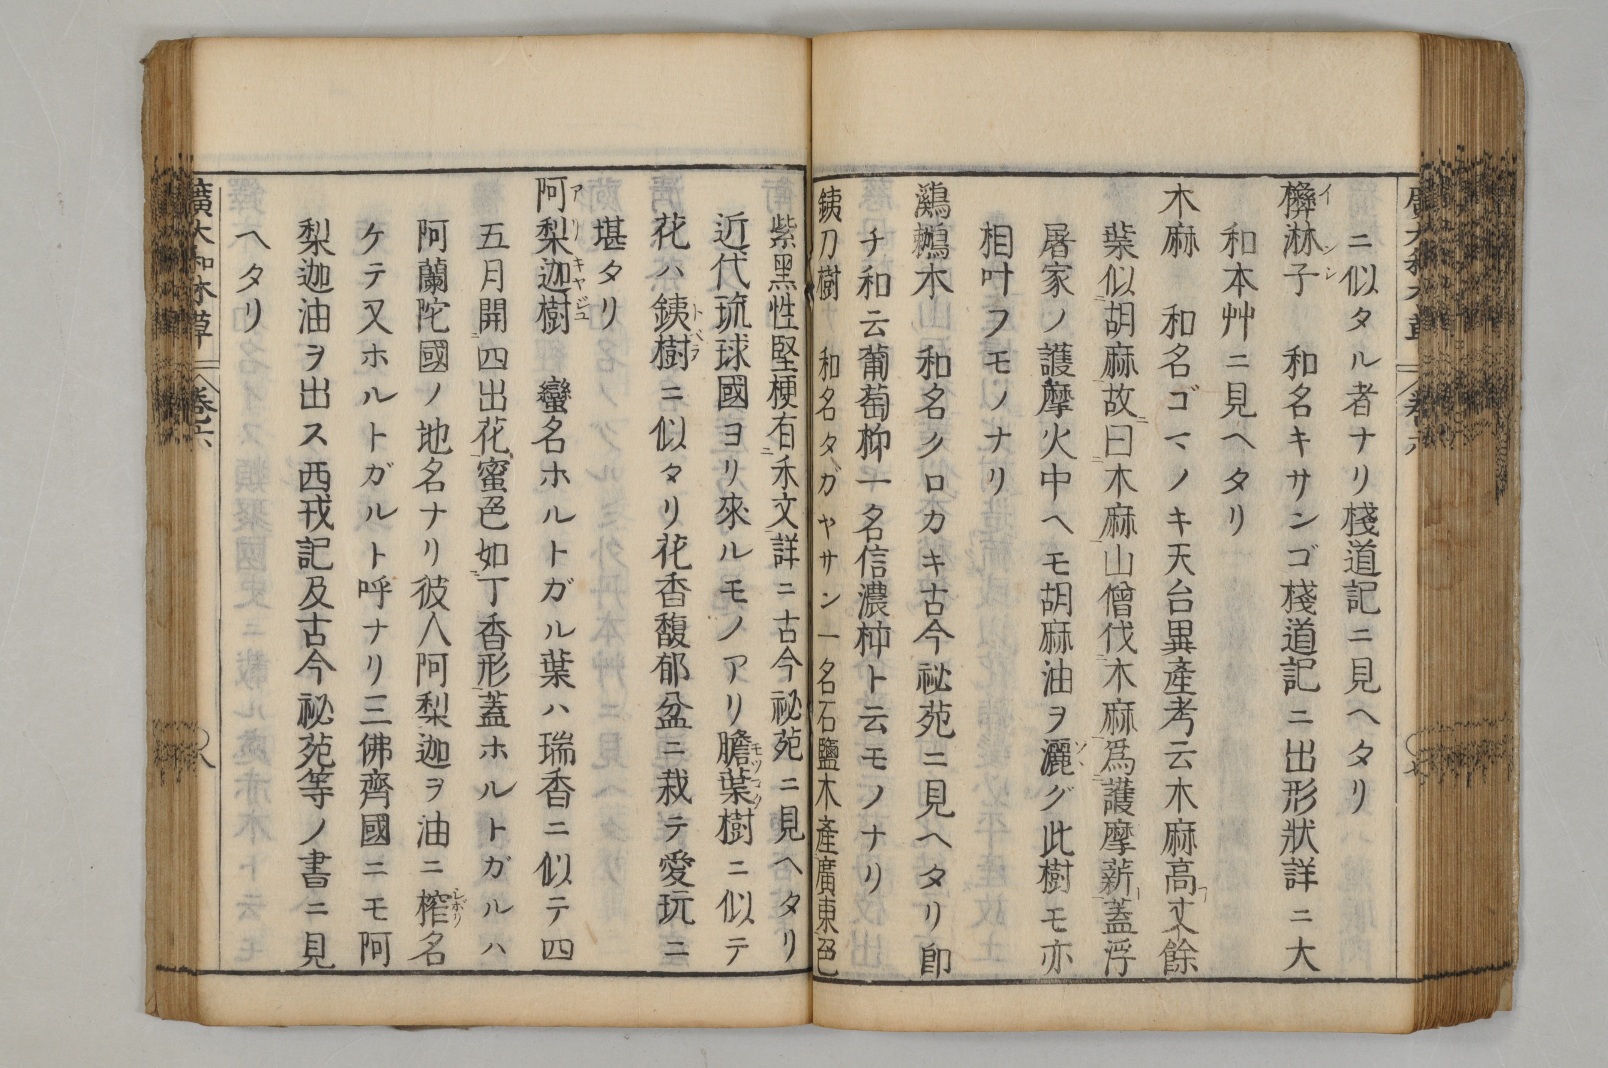 ニ似タル者ナリ棧道記ニ見ヘタリ
櫸淋子　和名キサンゴ棧道記ニ出形狀詳ニ大
イシン
和本艸ニ見ヘタリ
木麻　和名ゴマノキ天台異產考云木麻高丈餘
葉似胡麻故曰木麻山僧伐木麻爲護摩薪蓋浮
屠家ノ護摩火中ヘモ胡麻油ヲ灑グ此樹モ亦
ソヽ
相叶フモノナリ
鷄鵣木　和名クロカキ古今祕苑ニ見ヘタリ卽
チ和云葡萄柹一名信濃柹ト云モノナリ
銕刀樹　和名タガヤサン一名石鹽木產廣東色
紫黑性堅梗有禾文詳ニ古今祕苑ニ見ヘタリ
近代琉球國ヨリ來ルモノアリ膽葉樹ニ似テ
モツコク
花ハ銕樹ニ似タリ花香馥郁盆ニ栽テ愛玩ニ
トベラ
堪タリ
阿梨迦樹　蠻名ホルトガル葉ハ瑞香ニ似テ四
アリキヤジユ
五月開四出花蜜色如丁香形蓋ホルトガルハ
阿蘭陀國ノ地名ナリ彼人阿梨迦ヲ油ニ榨名
シボリ
ケテ又ホルトガルト呼ナリ三佛齊國ニモ阿
梨迦油ヲ出ス西戎記及古今祕苑等ノ書ニ見
ヘタリ
廣大和本草　卷六